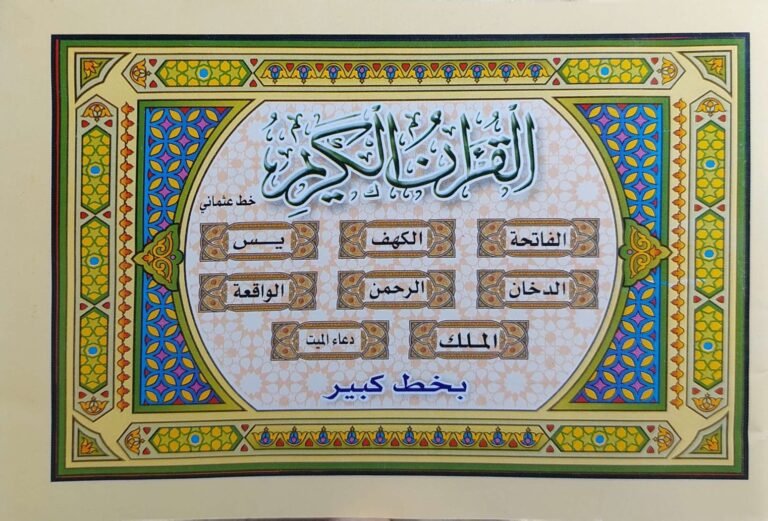 القرآن الكريم
خط عثماني
الفاتحة الكهف يــس
الدخان الرحمن الواقعة
الملك دعاء الميت
بخط كبير